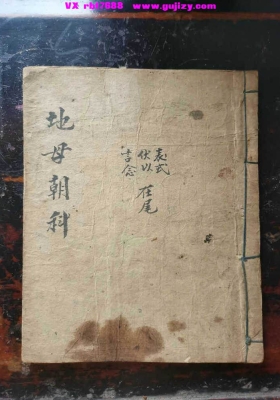 VX rbt7888 www.gujizy.com
地母朝科
表式
伏以在尾